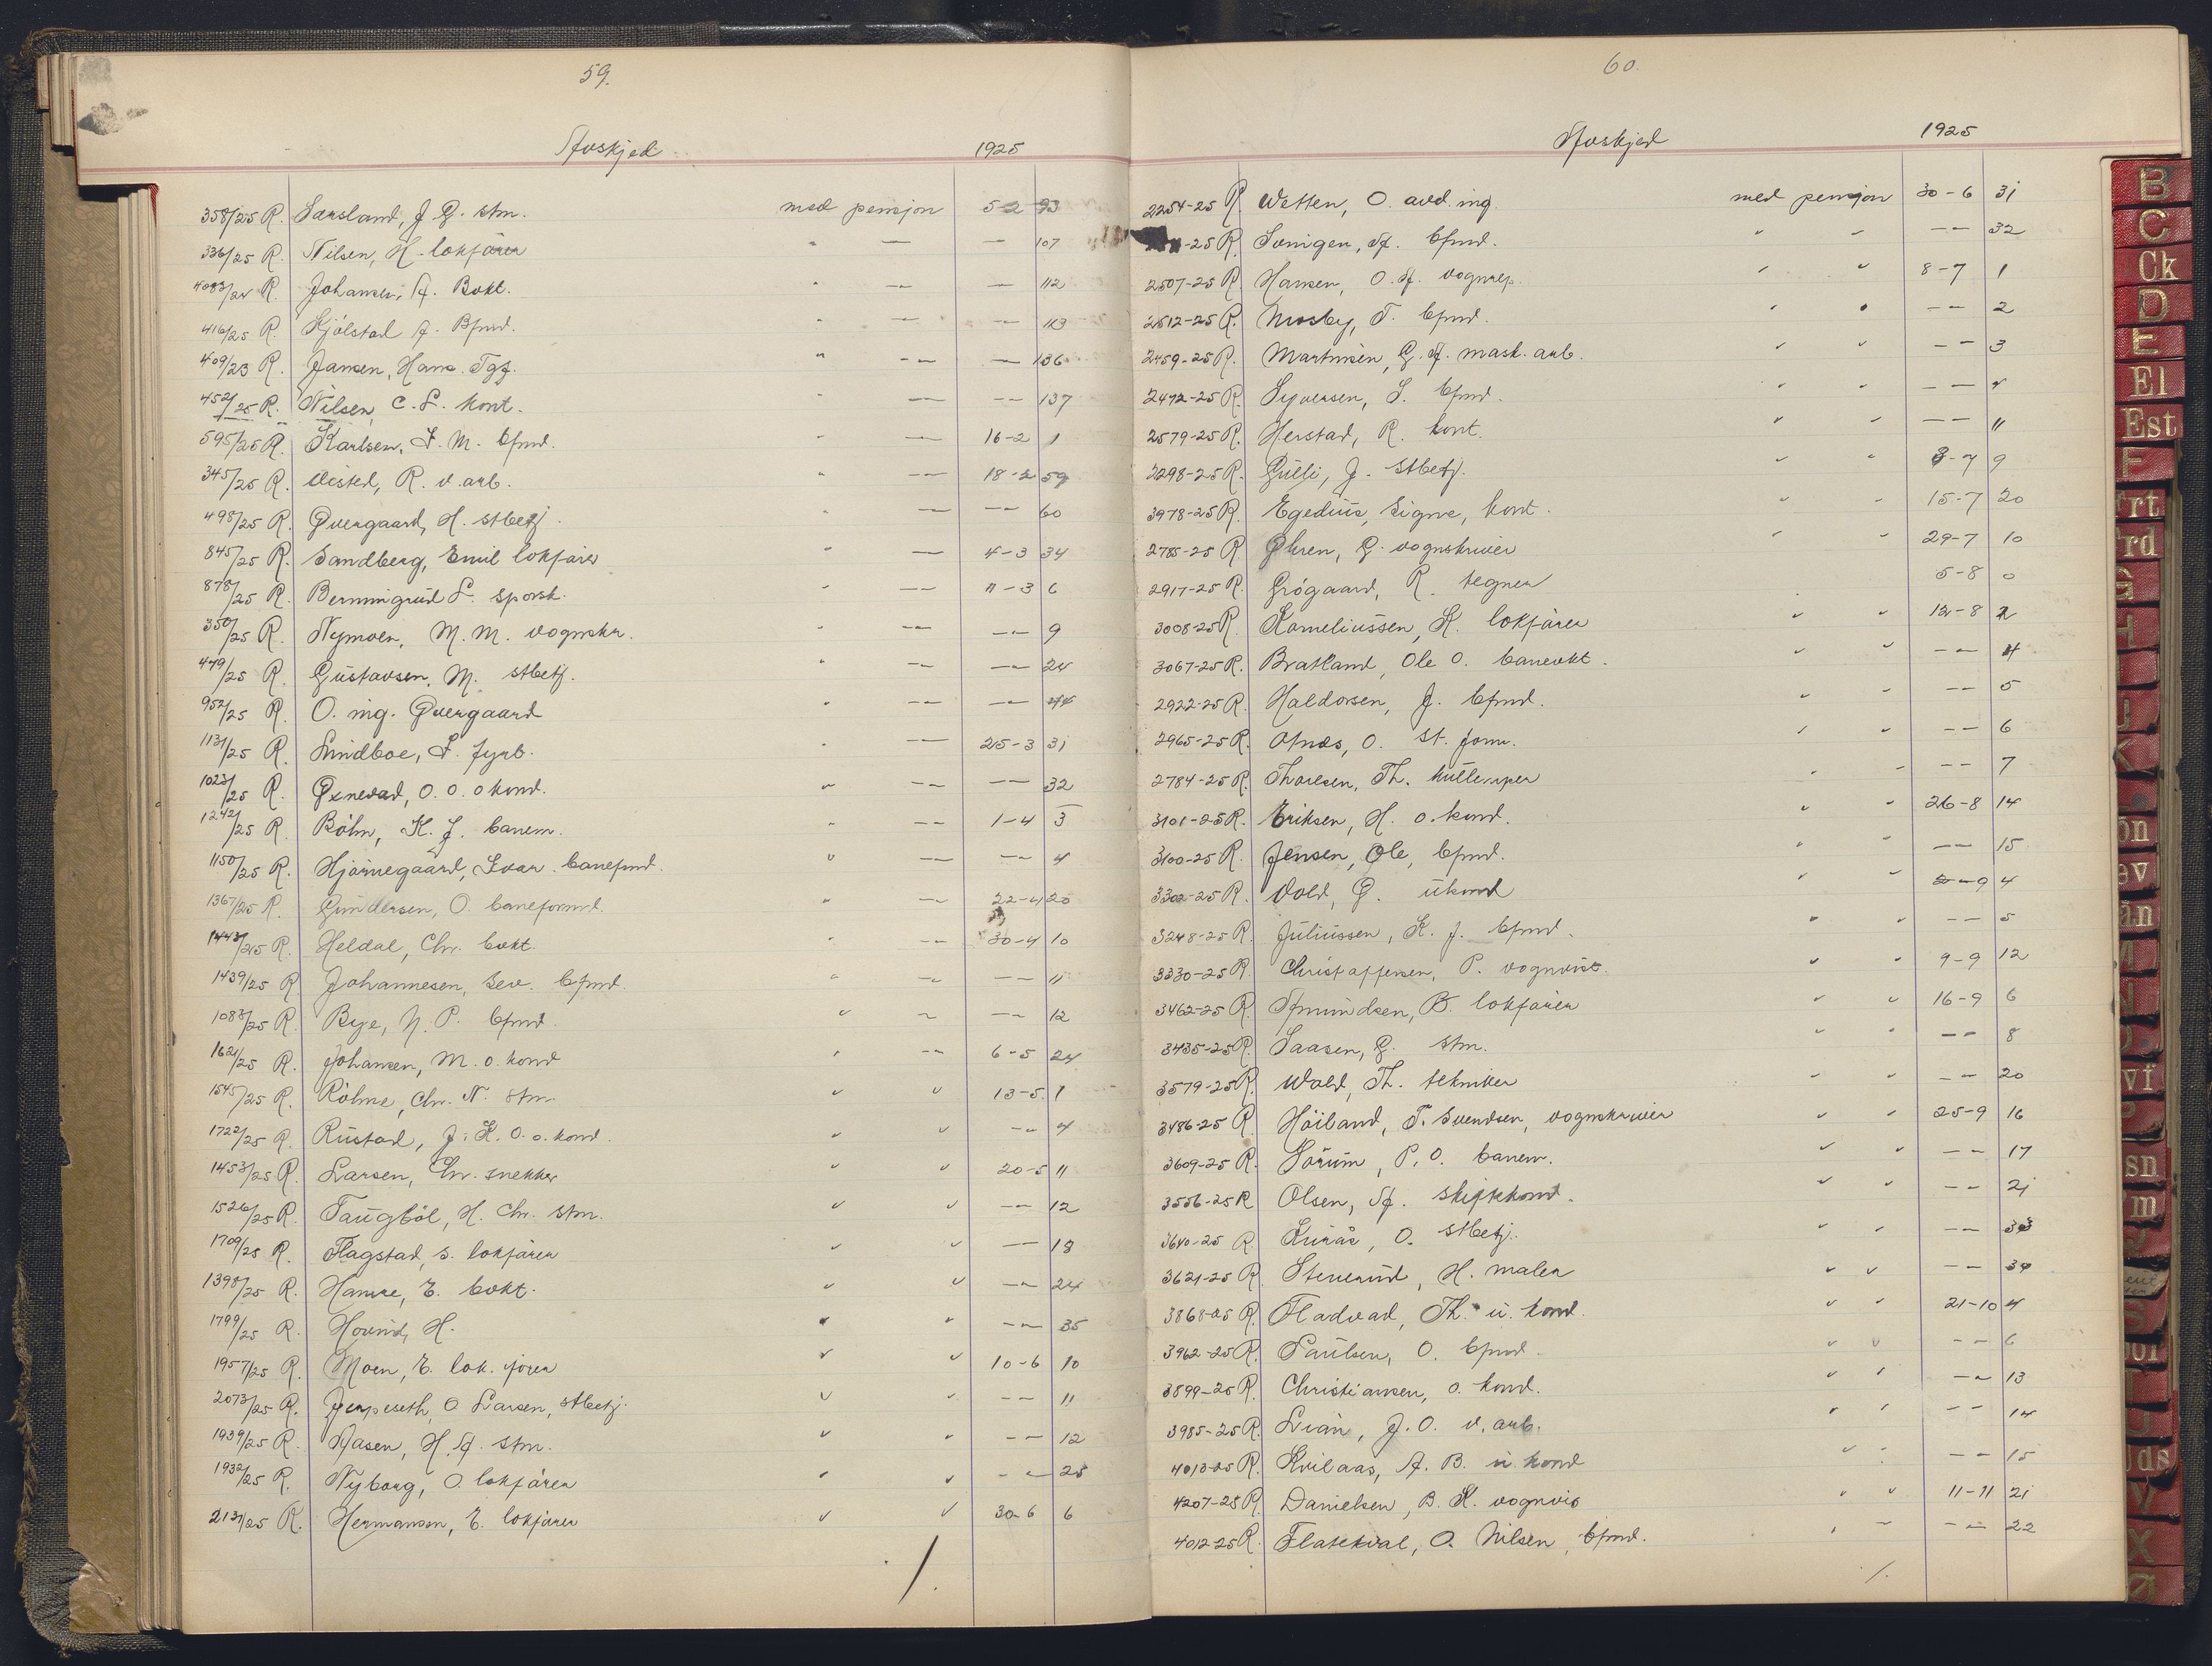 59.
Avskjed 1925
358/25 R. Sørsland, J. G. stm. med pensjon 5-2 93
336/25 R. Nilsen, H. lokfører " — — 107
4083/24 R. Johansen, A. Bvkt. " — — 112
416/25 R. Kjölstad A. Bfmd. " — — 113
409/23 R. Jansen, Hans. Tgf. " — — 136
452/25 R. Nilsen, C. L. kont. " — — 137
595/25 R. Karlsen, L. M. bfmd. " — 16-2 1
345/25 R. R. v. arb. " — 18-2 59
498/25 R. Øvergaard, H. stbetj. " — — 60
845/25 R. Sandberg, Emil lokfører " — 4-3 34
878/25 R. L. sporsk. " — 11-3 6
350/25 R. Nymoen, M. M. vognskr. " — — 9
449/25 R. Gustavsen, M. stbetj. " — — 24
952/25 R. O. ing. Øvergaard " — — 44
1131/25 R. Lindboe, L. fyrb. " — 25-3 31
1023/25 R. Øxnevad, O. O. o. kond. " — — 32
1242/25 R. Böhm, K. J. banem. " — 1-4 3
1150/25 R. Hjörnegaard, Ivar. banefmd. " — — 4
1367/25 R. Gundersen, O. baneformd. " — 22-4 20
1443/25 R. Heldal, Chr. bvkt. " — 30-4 10
1439/25 R. Johannesen, Sev. bfmd. " — — 11
1083/25 R. Bye, N. P. bfmd. " — — 12
1621/25 R. Johansen, M. o. kond " — 6-5 24
1545/25 R. Röhme, Chr. N. stm. " " 13-5. 1
1722/25 R. Rustad, J. K. O. o. kond. " " — 4
1453/25 R. Larsen, Chr. snekker " " 20-5 11
1526/25 R. Taugböl, H. Chr. stm. " " — 12
1709/25 R. Flagstad, S. lokfører " " — 18
1398/25 R. Hamre, E. bvkt. " " — 24
1799/25 R. Hovind, H. " " — 35
1957/25 R. Moen, E. lok. fører " " 10-6 10
2073/25 R. Jerpeseth, O. Larsen, stbetj. " " — 11
1939/25 R. Aasen, H. A. stm. " " — 12
1932/25 R. Nyborg, O. lokfører " " — 25
2131/25 R. Hermansen, E. lokfører " " 30-6 6
/.
60.
Avskjed 1925
2254-25 R. Wetten, O. avd. ing. med pensjon 30-6 31
-25 R. A. bfmd. " " — 32
2507-25 R. Hansen, O. A. vognrep. " " 8-7 1
2512-25 R. Mosby, T. bfmd. " " — 2
2459-25 R. Martinsen, G. A. mask. arb. " " — 3
2472-25 R. Syversen, S. bfmd. " " — 4
2579-25 R. Herstad, R. kont. " " — 11
2298-25 R. Gulli, J. stbetj. " " 8-7 9
3978-25 R. Egedius, Signe, kont. " " 15-7 20
2785-25 R. Øhren, G. vognskriver " " 29-7 10
2917-25 R. Grögaard, R. tegner 5-8 0
3008-25 R. Korneliussen, K. lokfører " " 12-8 2
3067-25 R. Bratland, Ole O. banevkt. " " — 4
2922-25 R. Haldorsen, J. bfmd. " " — 5
2965-25 R. O. st. form. " " — 6
2784-25 R. Thoresen, Th. " " — 7
3101-25 R. Eriksen, H. o. kond. " " 26-8 14
3100-25 R. Jensen, Ole, bfmd. " " — 15
3302-25 R. Vold, G. ukond " " 2-9 4
3248-25 R. Juliussen, K. J. bfmd. " " — 5
3330-25 R. Christoffersen, P. vognvist. " " 9-9 12
3462-25 R. Amundsen, B. lokfører " " 16-9 6
3435-25 R. Saasen, G. stm. " " — 8
3579-25 R. Wold, Th. tekniker " " — 20
3486-25 R. Höiland, T. Svendsen, vognskriver " " 25-9 16
3609-25 R. Sörum, P. O. banem. " " — 17
3556-25 R Olsen, A. skiftekond. " " — 21
3640-25 R O. stbetj. " " — 33
3621-25 R Stenerud, H. maler " " — 34
3868-25 R. Fladvad, Th. u. kond. " " 21-10 4
3962-25 R. Paulsen, O. bfmd. " " — 6
3899-25 R. Christiansen, o. kond. " " — 13
3985-25 R. Lian, J. O. v. arb. " " — 14
4013-25 R. Kvilaas, A. B. u. kond " " — 15
4207-25 R. Danielsen, B. K. vognvis " " 11-11 21
4012-25 R. Flatekval, O. Nilsen, bfmd. " " — 22
/.
B
C
Ck
D
E
El
Est
F
rt
rd
G
H
I
J
K
on
ev
an
vf
sn
m
ds
V
X
Ø